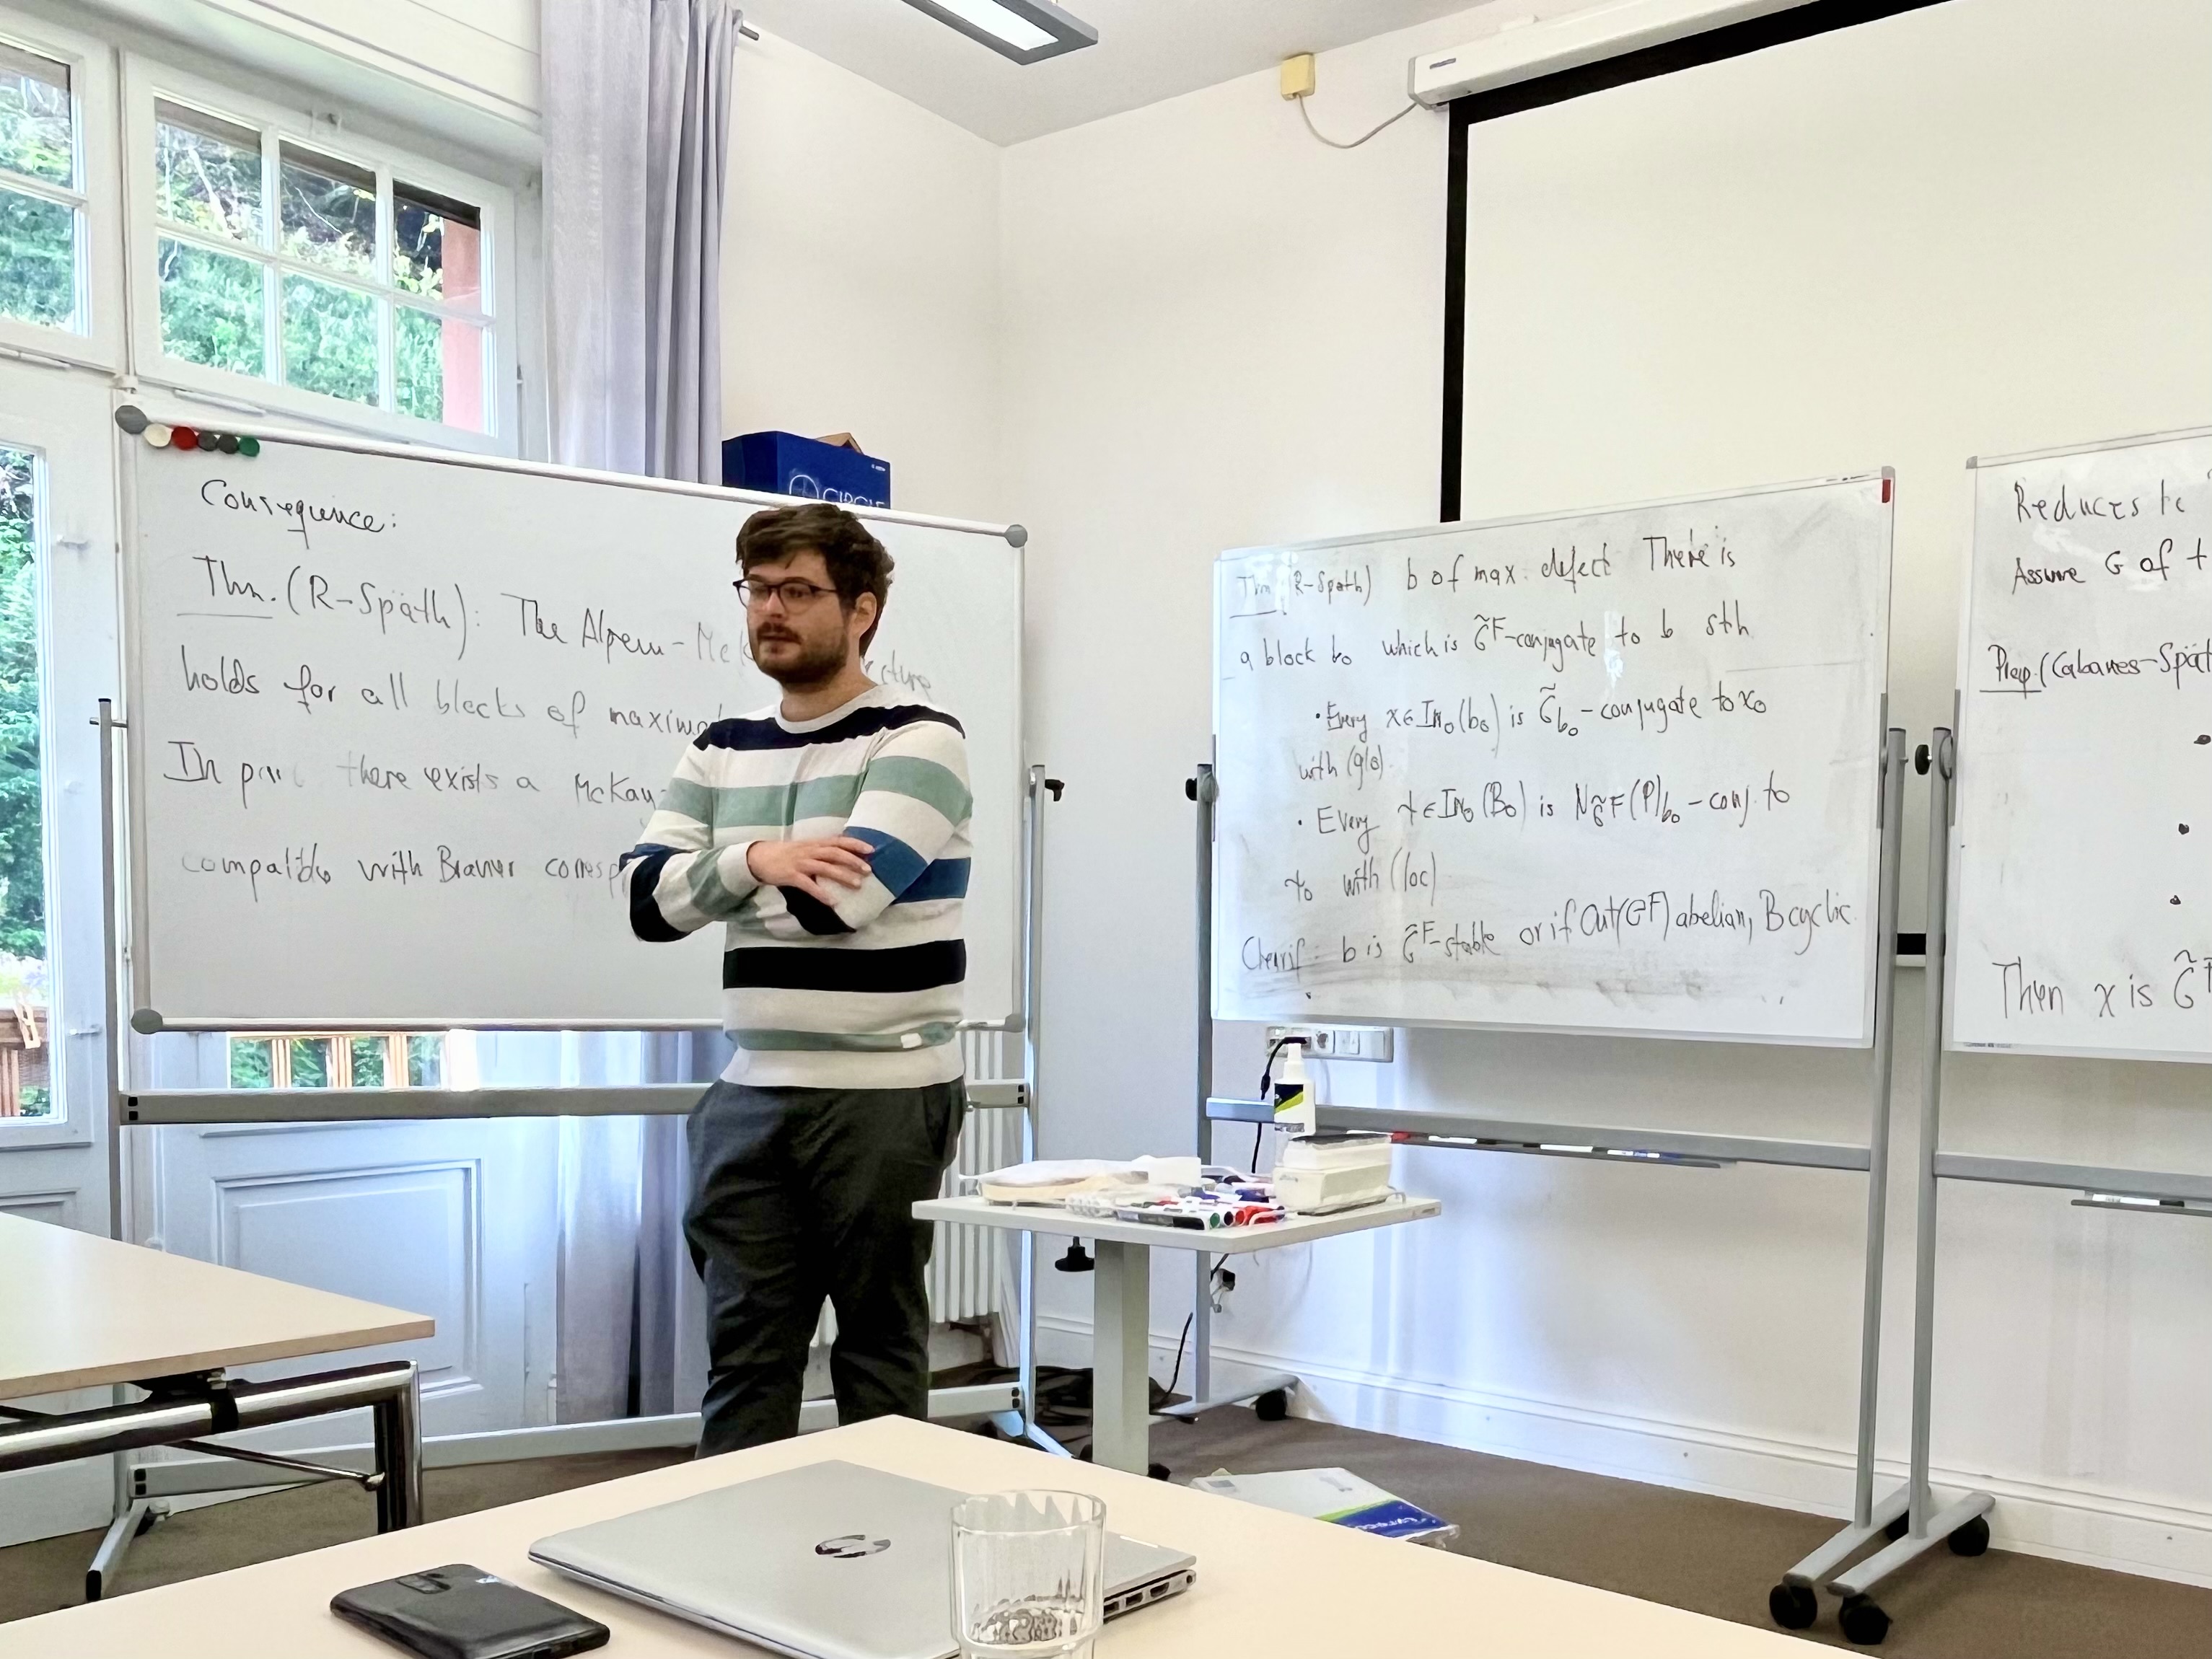 Consequence:
Thm. (R-Späth): The Alperin-McK cture
holds for all blocks of maximal
In part there exists a McKay-
compatible with Brauer corresp
CIRCLE
Thm (R-Späth) b of max. defect There is
a block b₀ which is G̃^F-conjugate to b sth
• Every χ∈Irr₀(b₀) is G̃_b₀-conjugate to χ₀
with (glo)
• Every ψ∈Irr₀(B₀) is N_G̃^F(P)_b₀-conj. to
ψ₀ with (loc)
Clear if: b is G̃^F-stable or if Out(G^F) abelian, B cyclic.
Reduces to
Assume G of t
Prop. (Cabanes-Spät
Then χ is G̃^F
hp